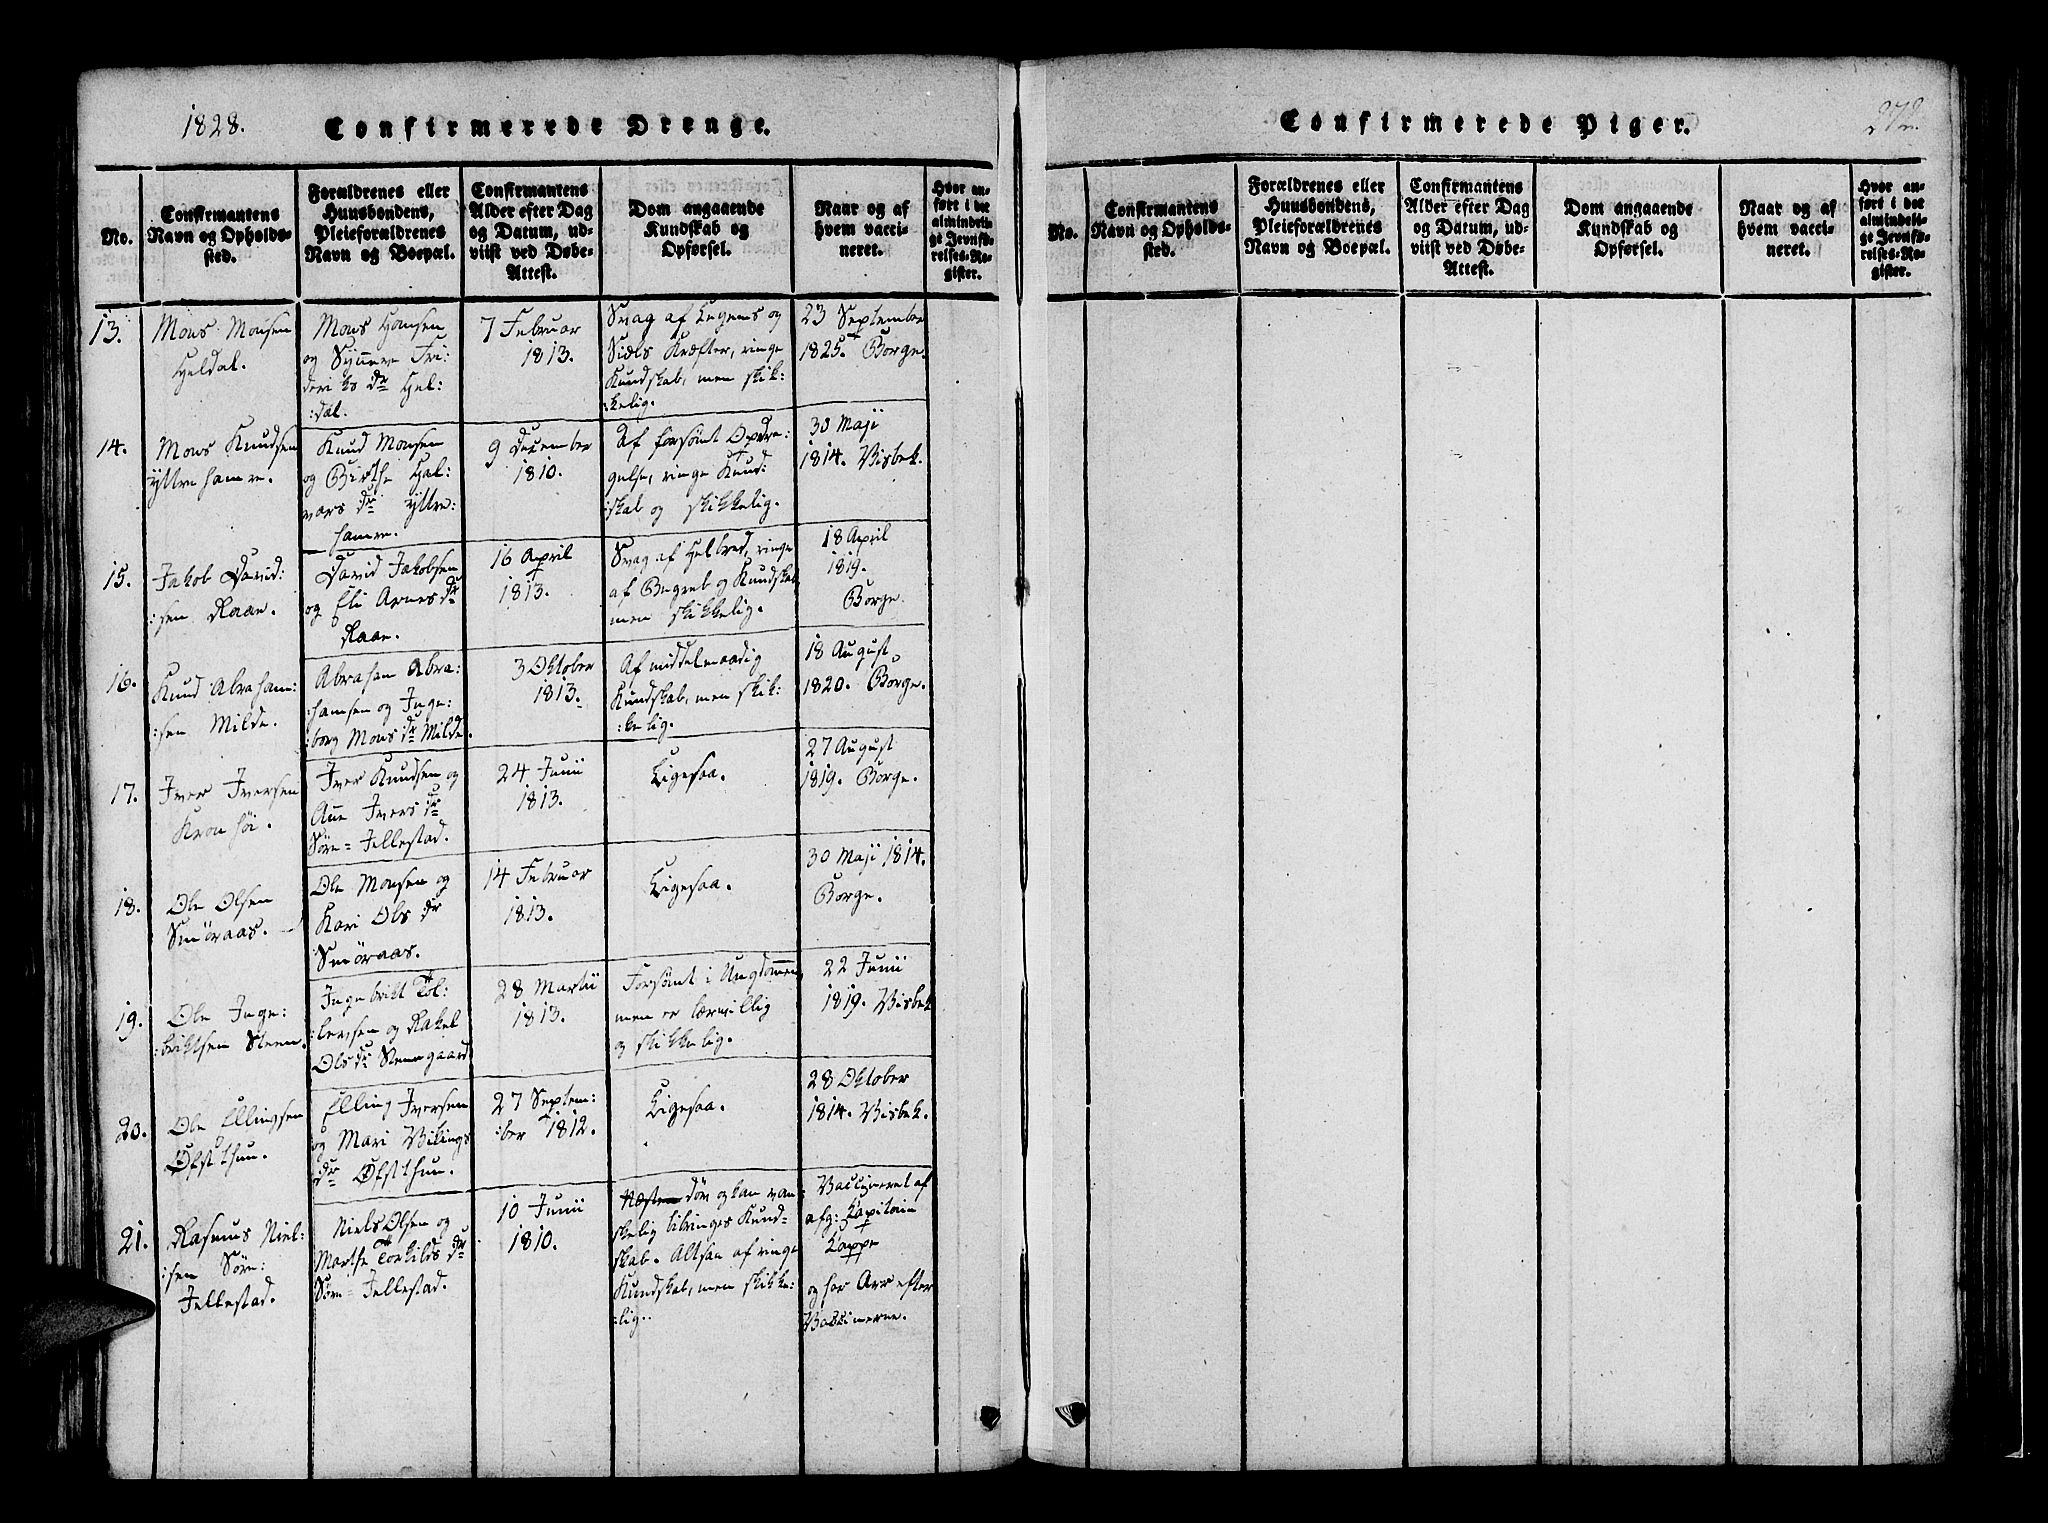 1828.
Confirmerede Drenge.
No.
Confirmantens
Navn og Opholds-
sted.
Forældrenes eller
Huusbondens,
Pleieforældrenes
Navn og Boepæl.
Confirmantens
Alder efter Dag
og Datum, ud-
viist ved Døbe-
Attest.
Dom angaaende
Kundskab og
Opførsel.
Naar og af
hvem vacci-
neret.
Hvor an-
ført i det
almindeli-
ge Jevnfø-
relses-Re-
gister.
13.
Mons Monsen
Heldal.
Mons Hansen
og Synneve Fri:
deriks dr Hel:
:dal.
7 Februar
1813.
Svag af Legems og
Siels Kræfter, ringe
Kundskab, men skik:
:kelig.
23 September
1825. Borge.
14.
Mons Knudsen
yttre hamre.
Knud Monsen
og Birthe Hal:
vors dr yttre:
hamre.
9 December
1810.
Af forsömt Opdra:
gelse, ringe Kund:
:skab og skikkelig.
30 Maji
1814. Visbek.
15.
Jakob David:
:sen Raae.
David Jakobsen
og Eli Arnes dr
Raae.
16 April
1813.
Svag af Helbred, ringe
af Begreb og Kundskab
men skikkelig.
18 April
1819.
Borge.
16.
Knud Abraham:
:sen Milde.
Abraham Abra:
:hamsen og Inge:
:borg Mons dr Milde.
3 Oktober
1813.
Af middelmaadig
Kundskab, men skik:
:kelig.
18 August
1820. Borge.
17.
Iver Iversen
Kronhöi.
Iver Knudsen og
Ane Ivers dr
Söre = Jellestad.
24 Junii
1813.
Ligesaa.
27 August
1819. Borge.
18.
Ole Olsen
Smöraas.
Ole Monsen og
Kari Ols dr
Smöraas.
14 Februar
1813.
Ligesaa.
30 Maji 1814.
Borge.
19.
Ole Inge:
:briktsen Steen.
Ingebrikt Tol:
:levsen og Rakel
Ols dr Steensgaard
28 Martii
1813.
Forsömt i Ungdommen
men er lærvillig
og skikkelig.
22 Junii
1819. Visbek
20.
Ole Ellingsen
Öfstthun.
Elling Iversen
og Mari Vilings
dr Öfstthun.
27 Septem:
:ber 1812.
Ligesaa.
28 Oktober
1814. Visbek.
21.
Rasmus Niel:
:sen Söre:
Jellestad.
Niels Olsen og
Marthe Torkilds dr
Söre = Jellestad.
10 Junii
1810.
Næsten döv og kan van:
skelig bibringes Kund-
skab. Altsaa af ringe
Kundskab, men skikke:
:lig.
Vaccineret af
afg: Kapitain
Kappe
og har Arr efter
Vaccinerne.
Confirmerede Piger.
272.
No.
Confirmantens
Navn og Opholds-
sted.
Forældrenes eller
Huusbondens,
Pleieforældrenes
Navn og Boepæl.
Confirmantens
Alder efter Dag
og Datum, ud-
viist ved Døbe-
Attest.
Dom angaaende
Kyndskab og
Opførsel.
Naar og af
hvem vacci-
neret.
Hvor an-
ført i det
almindeli-
ge Jevnfø-
relses-Re-
gister.